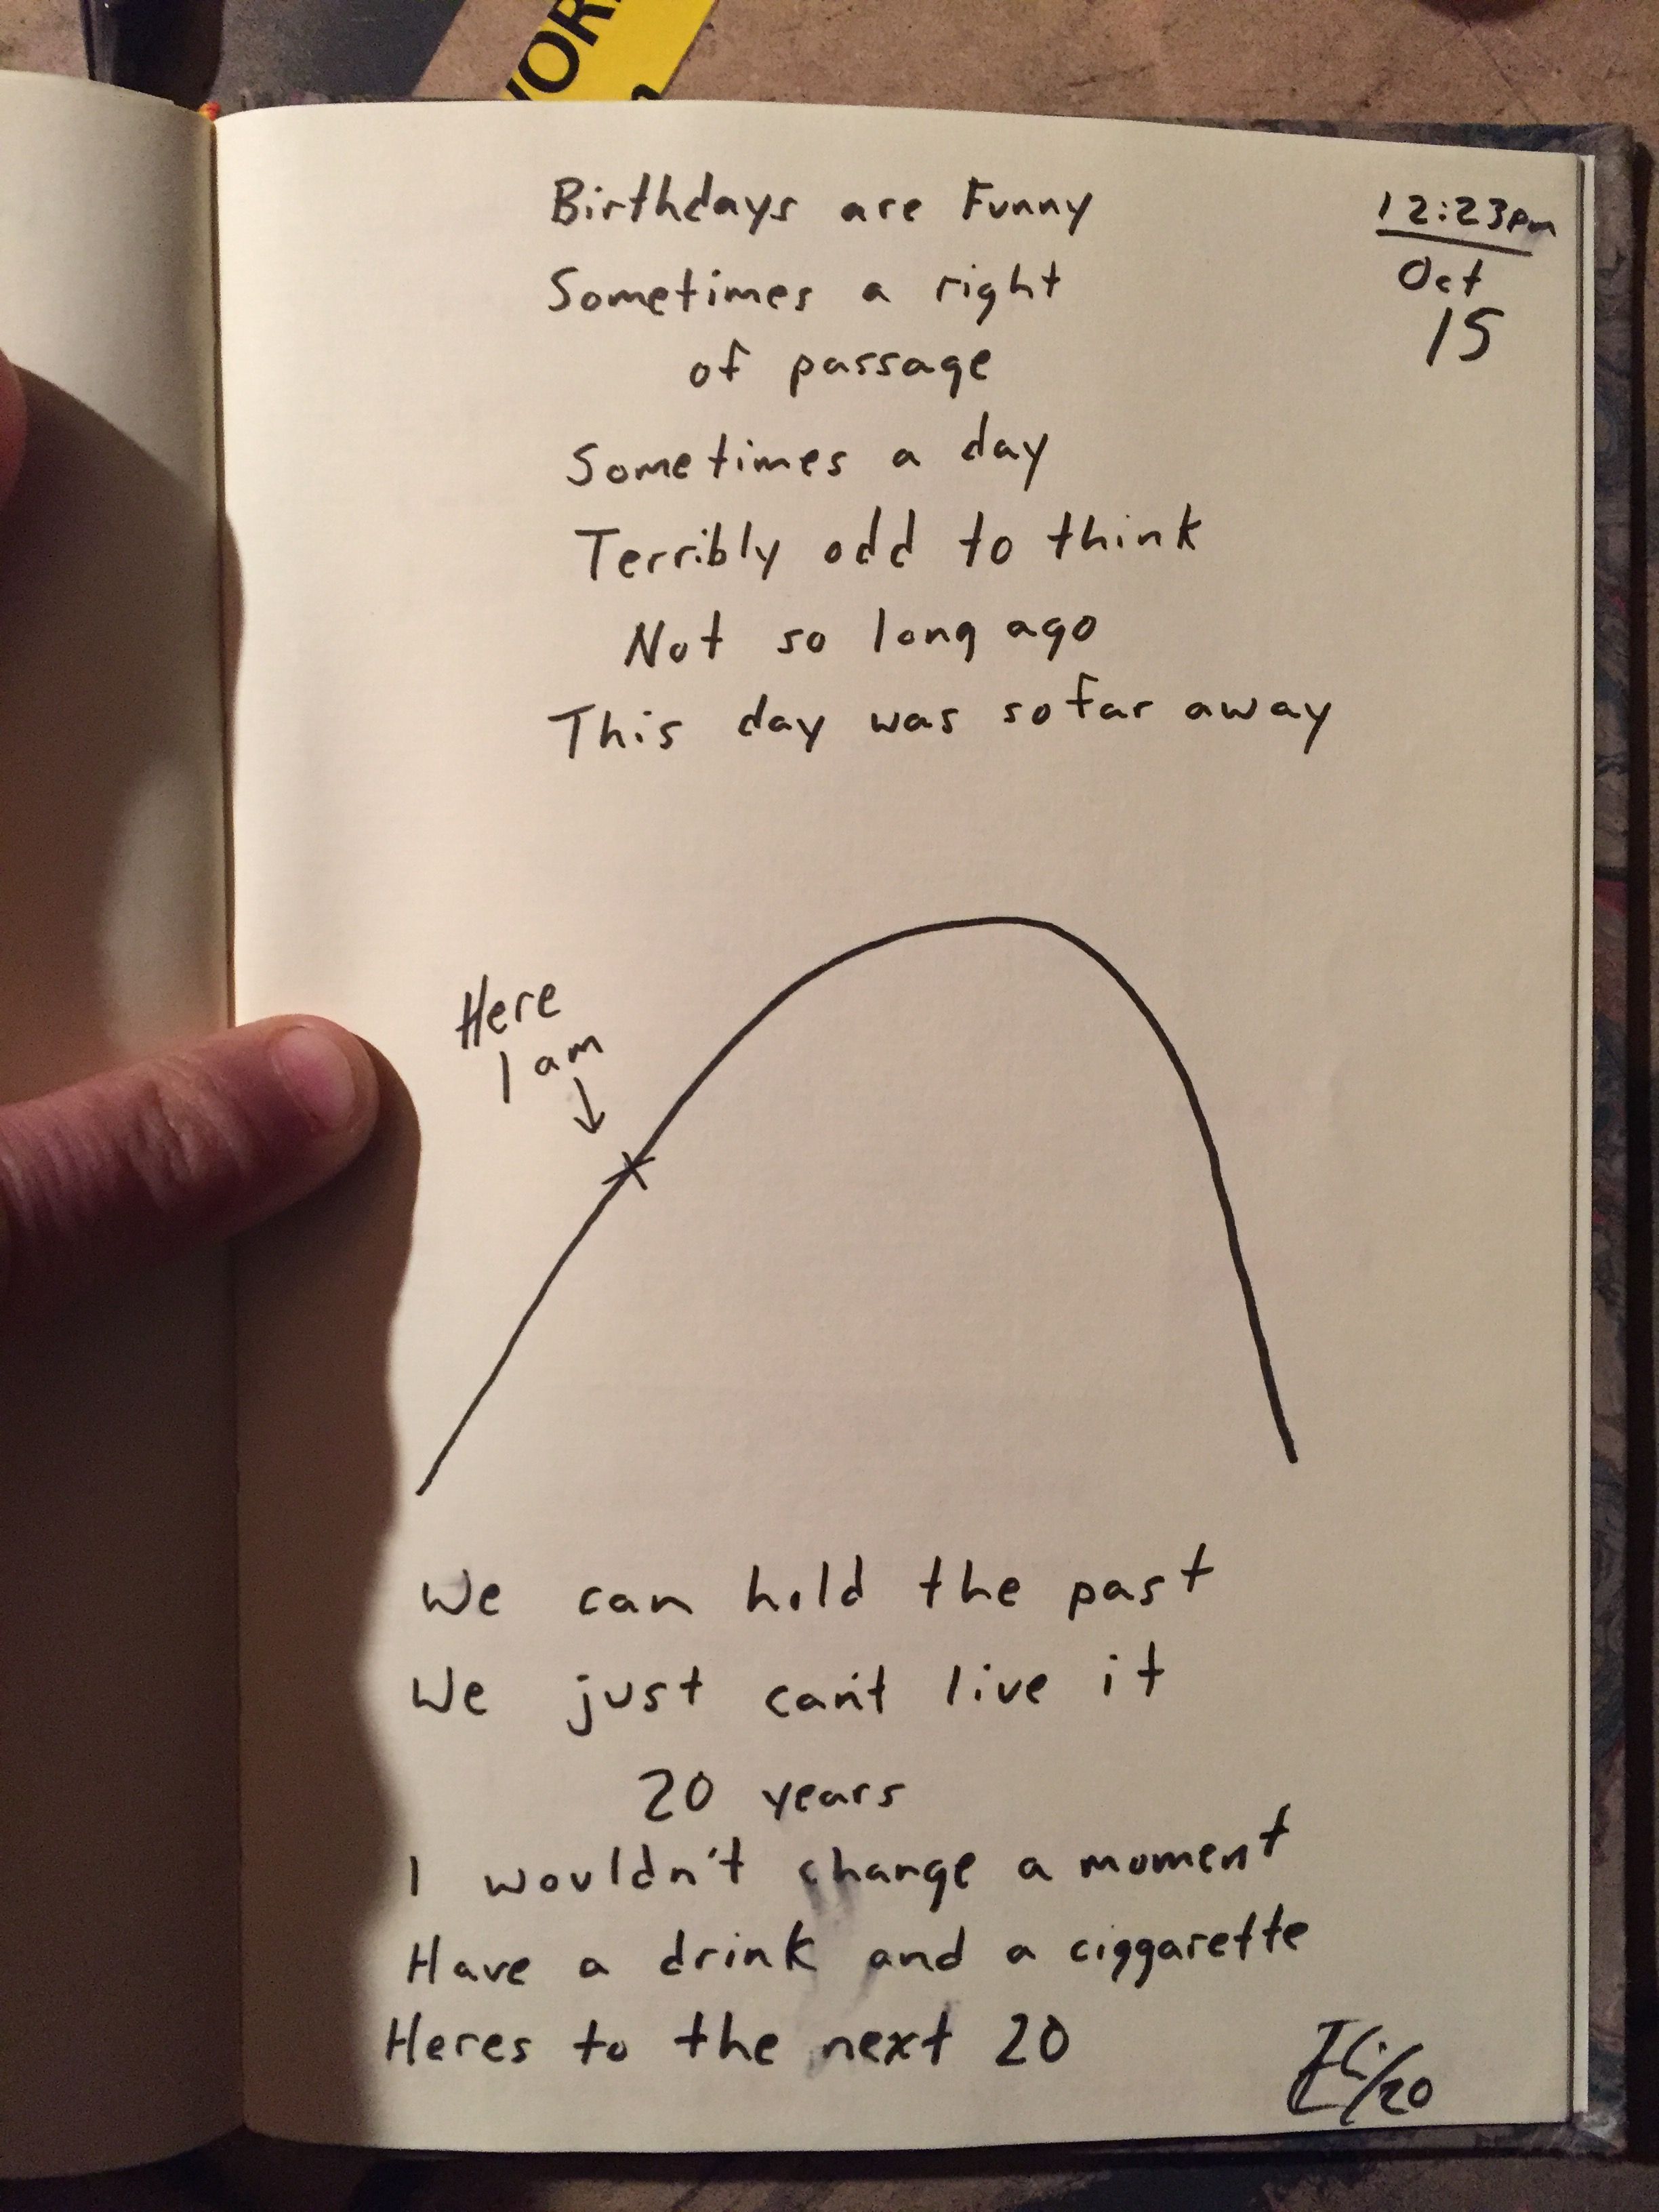 Birthdays are Funny
Sometimes a right
of passage
Sometimes a day
Terribly odd to think
Not so long ago
This day was so far away
12:23pm
Oct
15
Here
I am
We can hold the past
We just can't live it
20 years
I wouldn't change a moment
Have a drink and a ciggarette
Heres to the next 20
/20